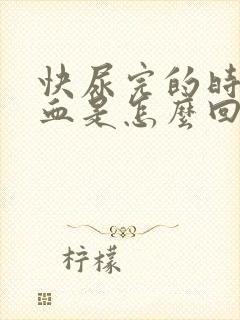 快尿完的时
血是怎麼回
柠檬